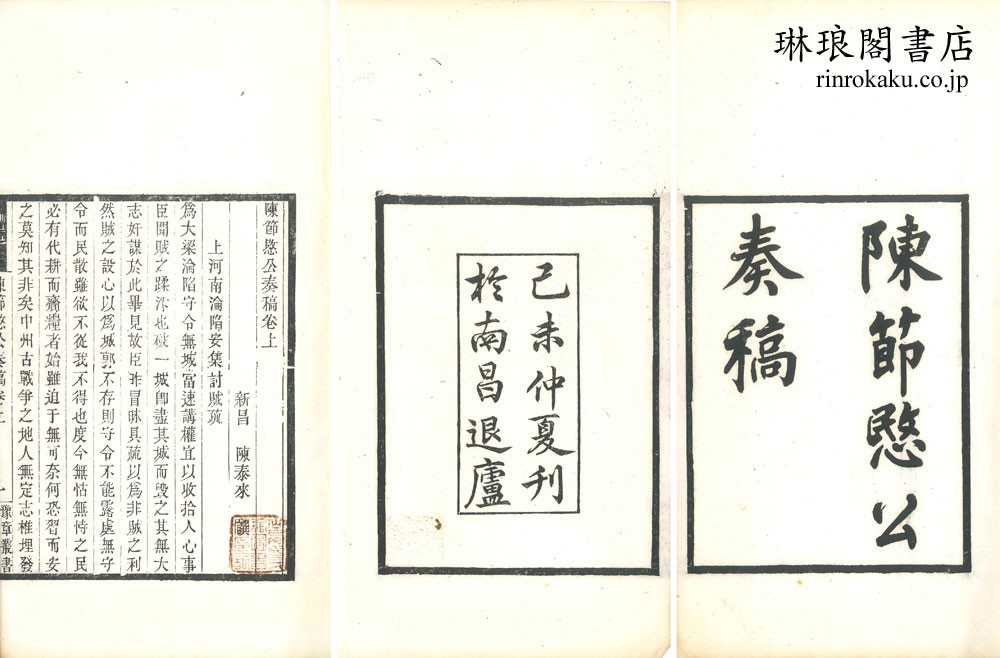 琳琅閣書店
rinrokaku.co.jp
陳節愍公
奏稿
己未仲夏刊
於南昌退廬
陳節愍公奏稿卷上
新昌 陳泰來 譔
上河南淪陷妄集討賊疏
為大梁淪陷守令無城當速講權宜以收拾人心事
臣聞賊之蹂汴也破一城卽盡其城而毀之其無大
志奸謀於此畢見故臣昨冒昧具疏以為非賊之利
然賊之設心以為城郭不存則守令不能露處無守
令而民散雖欲不從我不得也度今無怙無恃之民
必有代耕而齎糧者始雖迫于無可奈何恐習而安
之莫知其非矣中州古戰爭之地人無定志椎埋發
陳節愍公奏稿卷上
一
豫章叢書